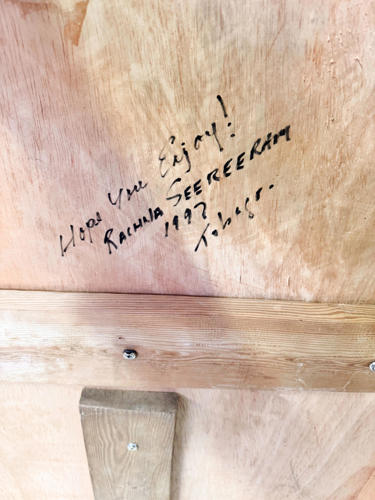 Hope You Enjoy!
RACHNA SEEREERAM
1997
Tobago.